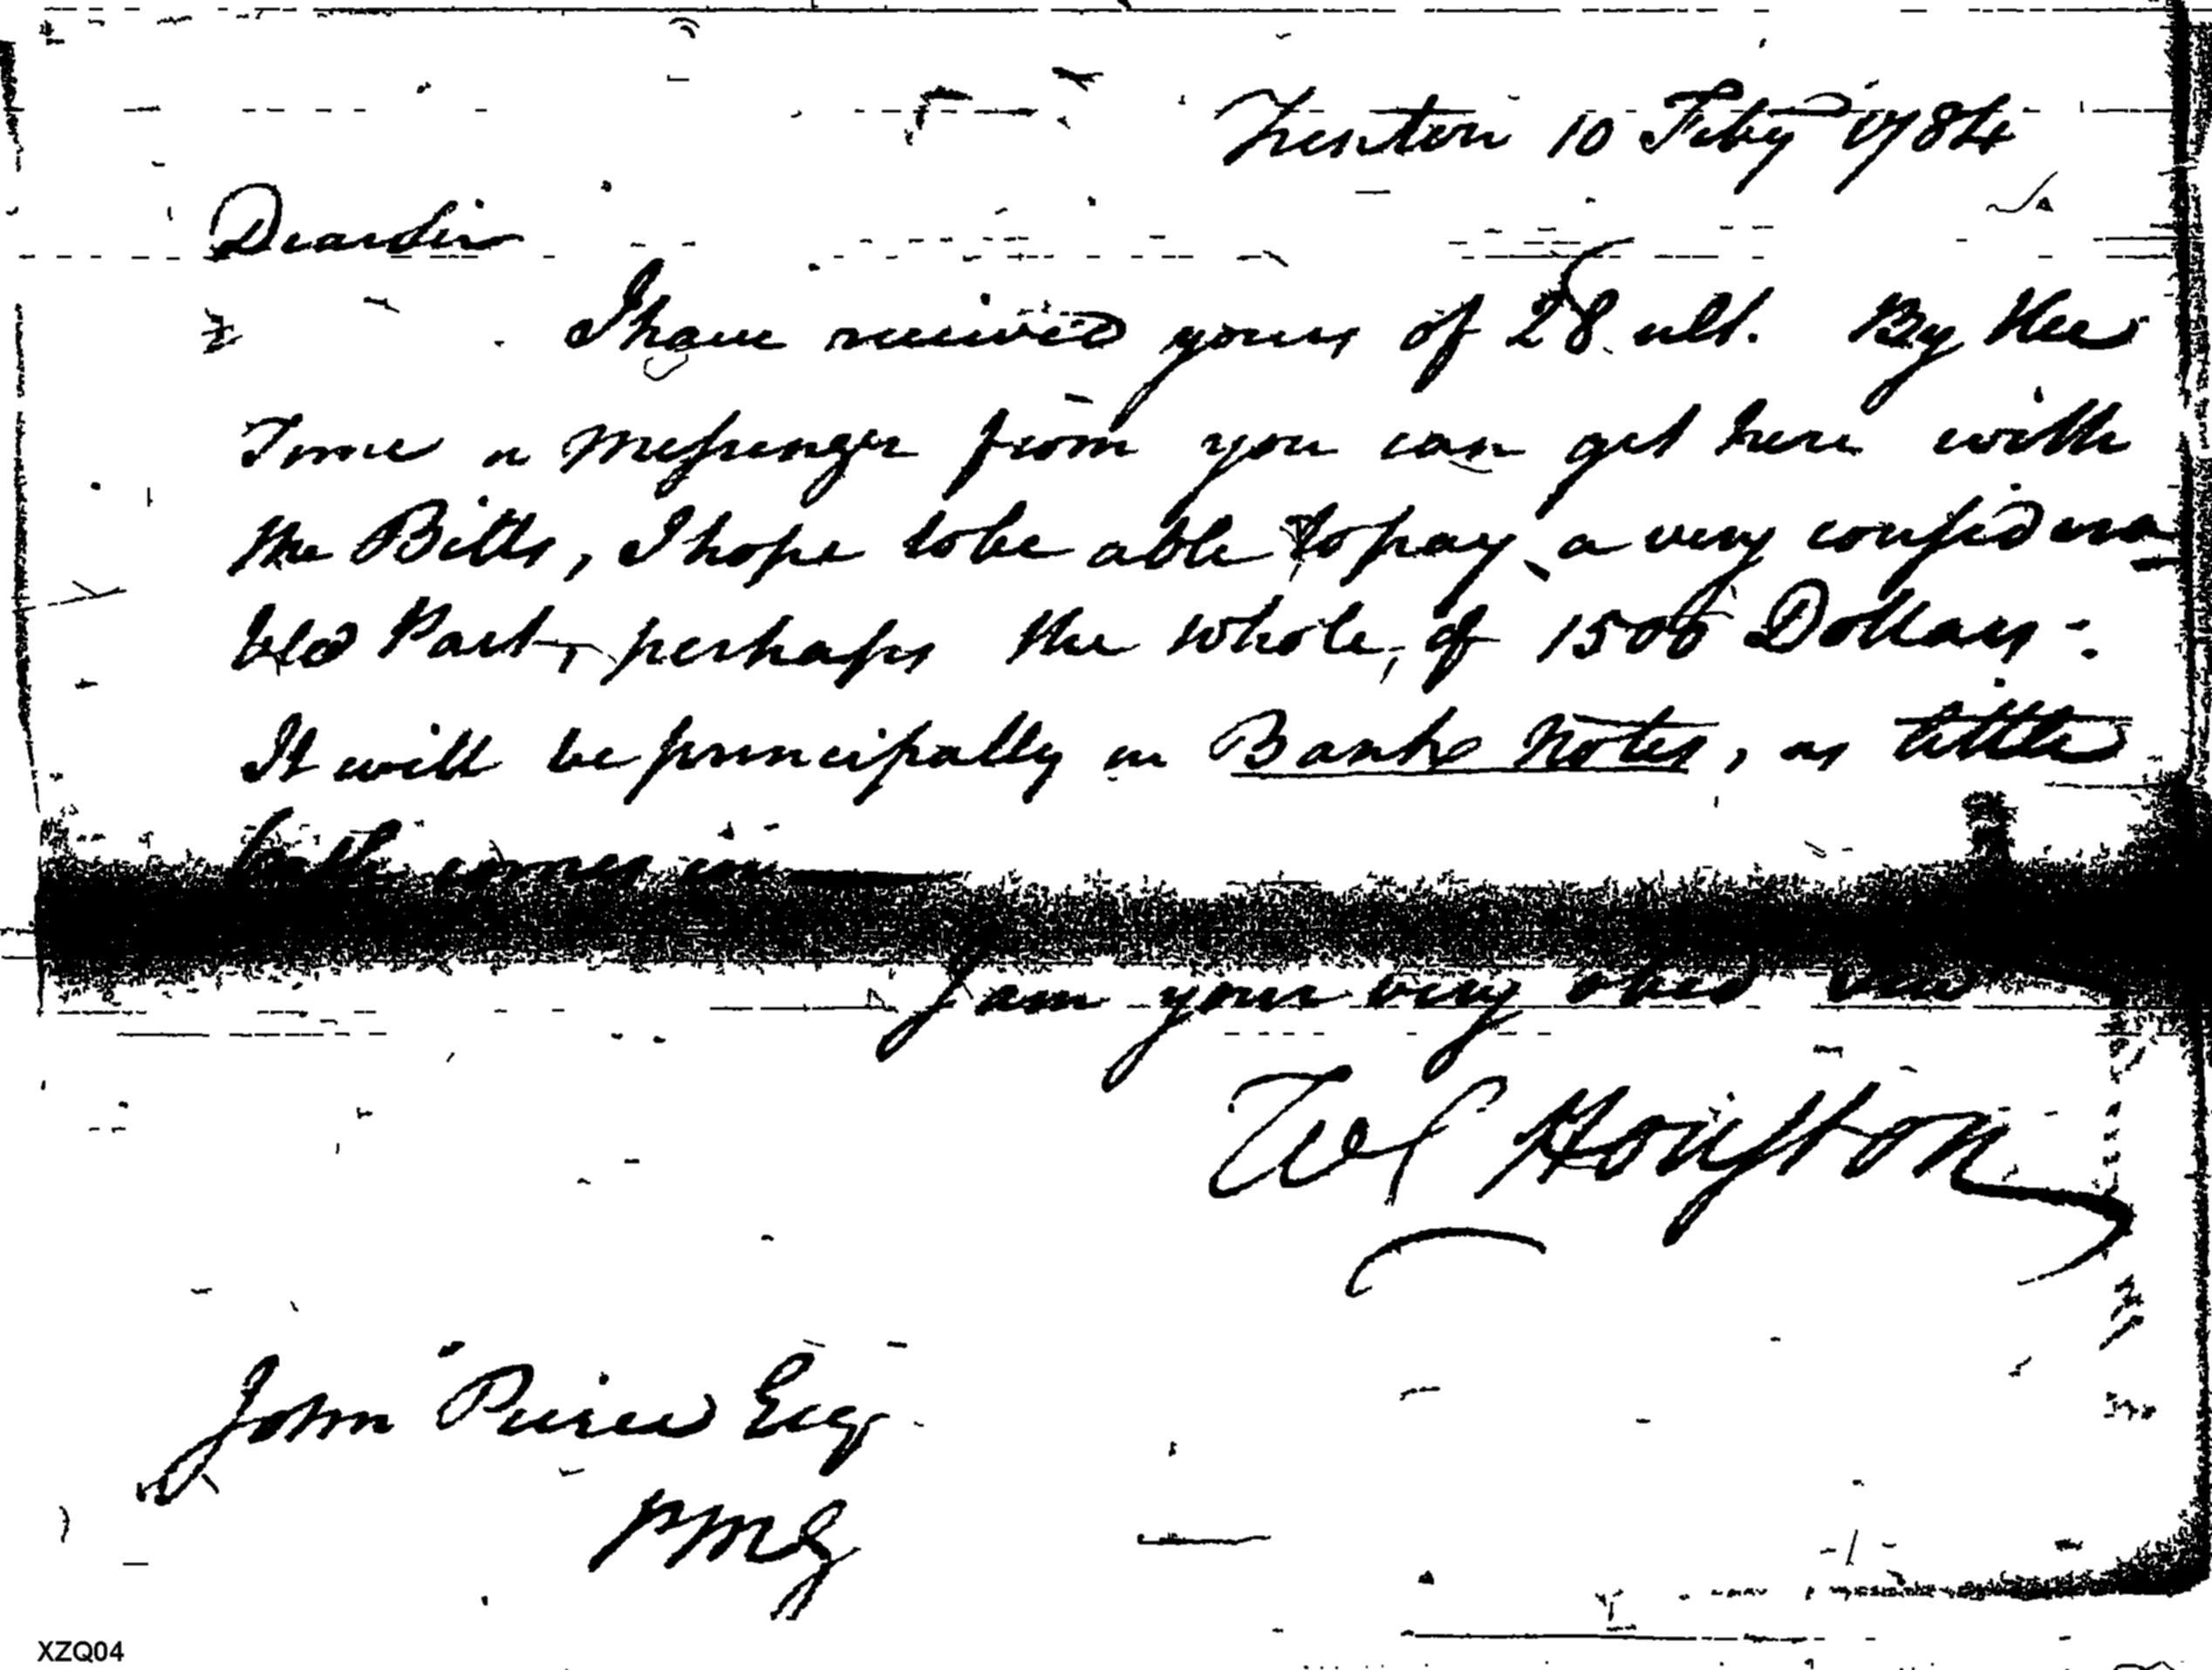 Trenton 10 Feby 1784
Dear Sir
I have received yours of 28 ult. By the
Time a Messenger from you can get here with
the Bills, I hope to be able to pay a very considera
ble Part, perhaps the whole, of 1500 Dollars:
It will be principally in Bank Notes, as little
comes in
I am your very obed
WC Houston
John Pierce Esq
PMG
XZQ04